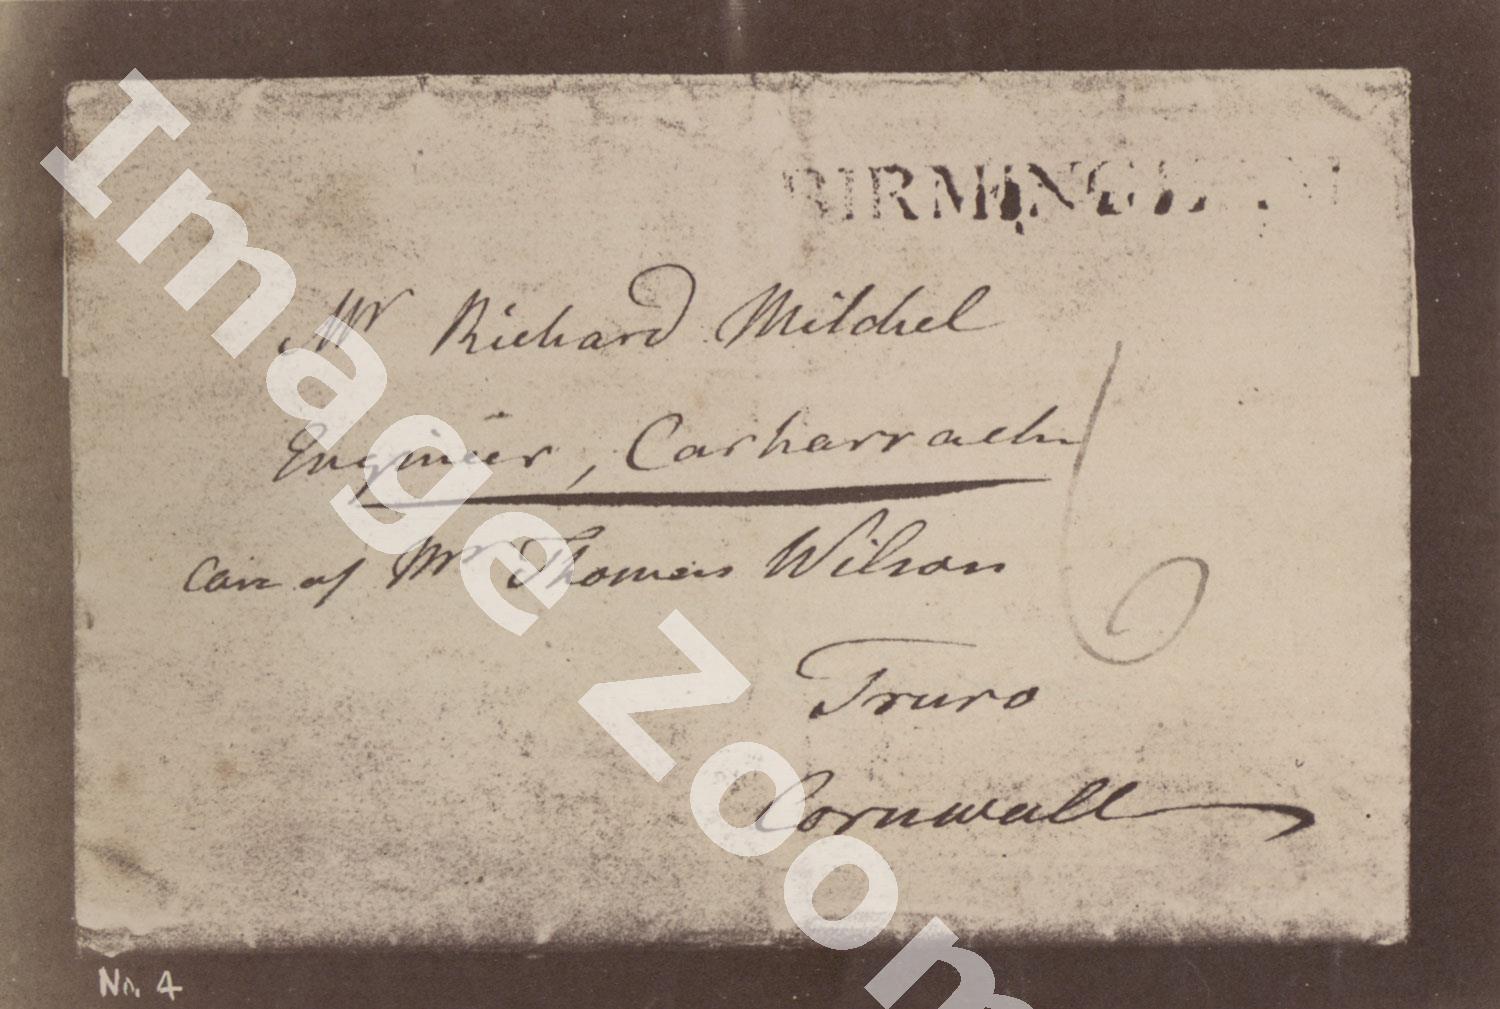 BIRMINGHAM
Mr Richard Mitchel
Engineer, Carharrach
6
care of Mr Thomas Wilson
Truro
Cornwall
No. 4
Image Zoom